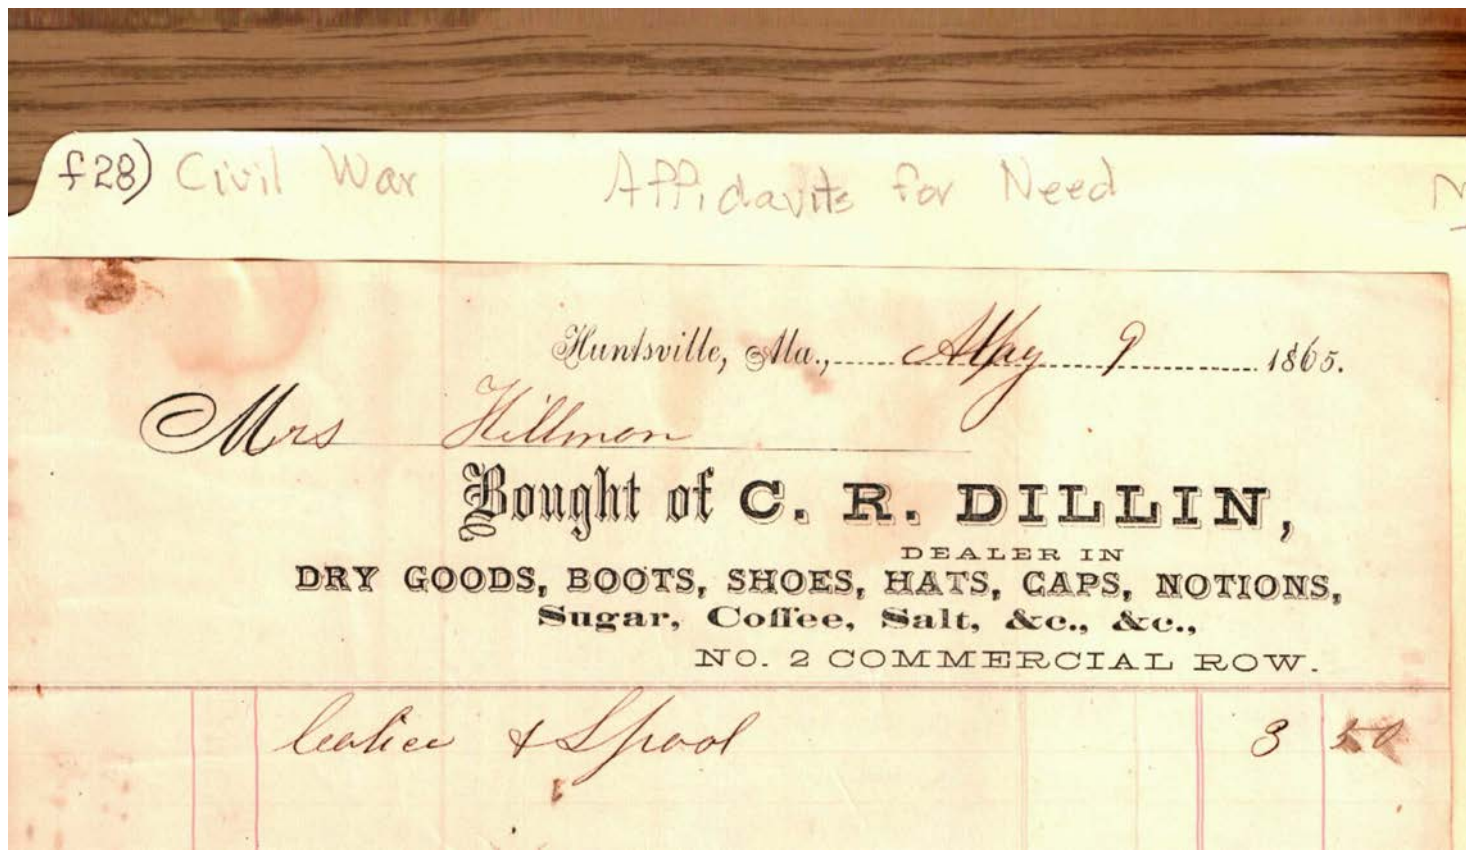 f28) Civil War Affidavits for Need
Huntsville, Ala., May 9 1865.
Mrs Hillmon
Bought of C. R. DILLIN,
DEALER IN
DRY GOODS, BOOTS, SHOES, HATS, CAPS, NOTIONS,
Sugar, Coffee, Salt, &c., &c.,
NO. 2 COMMERCIAL ROW.
Calico & Spool 3 50